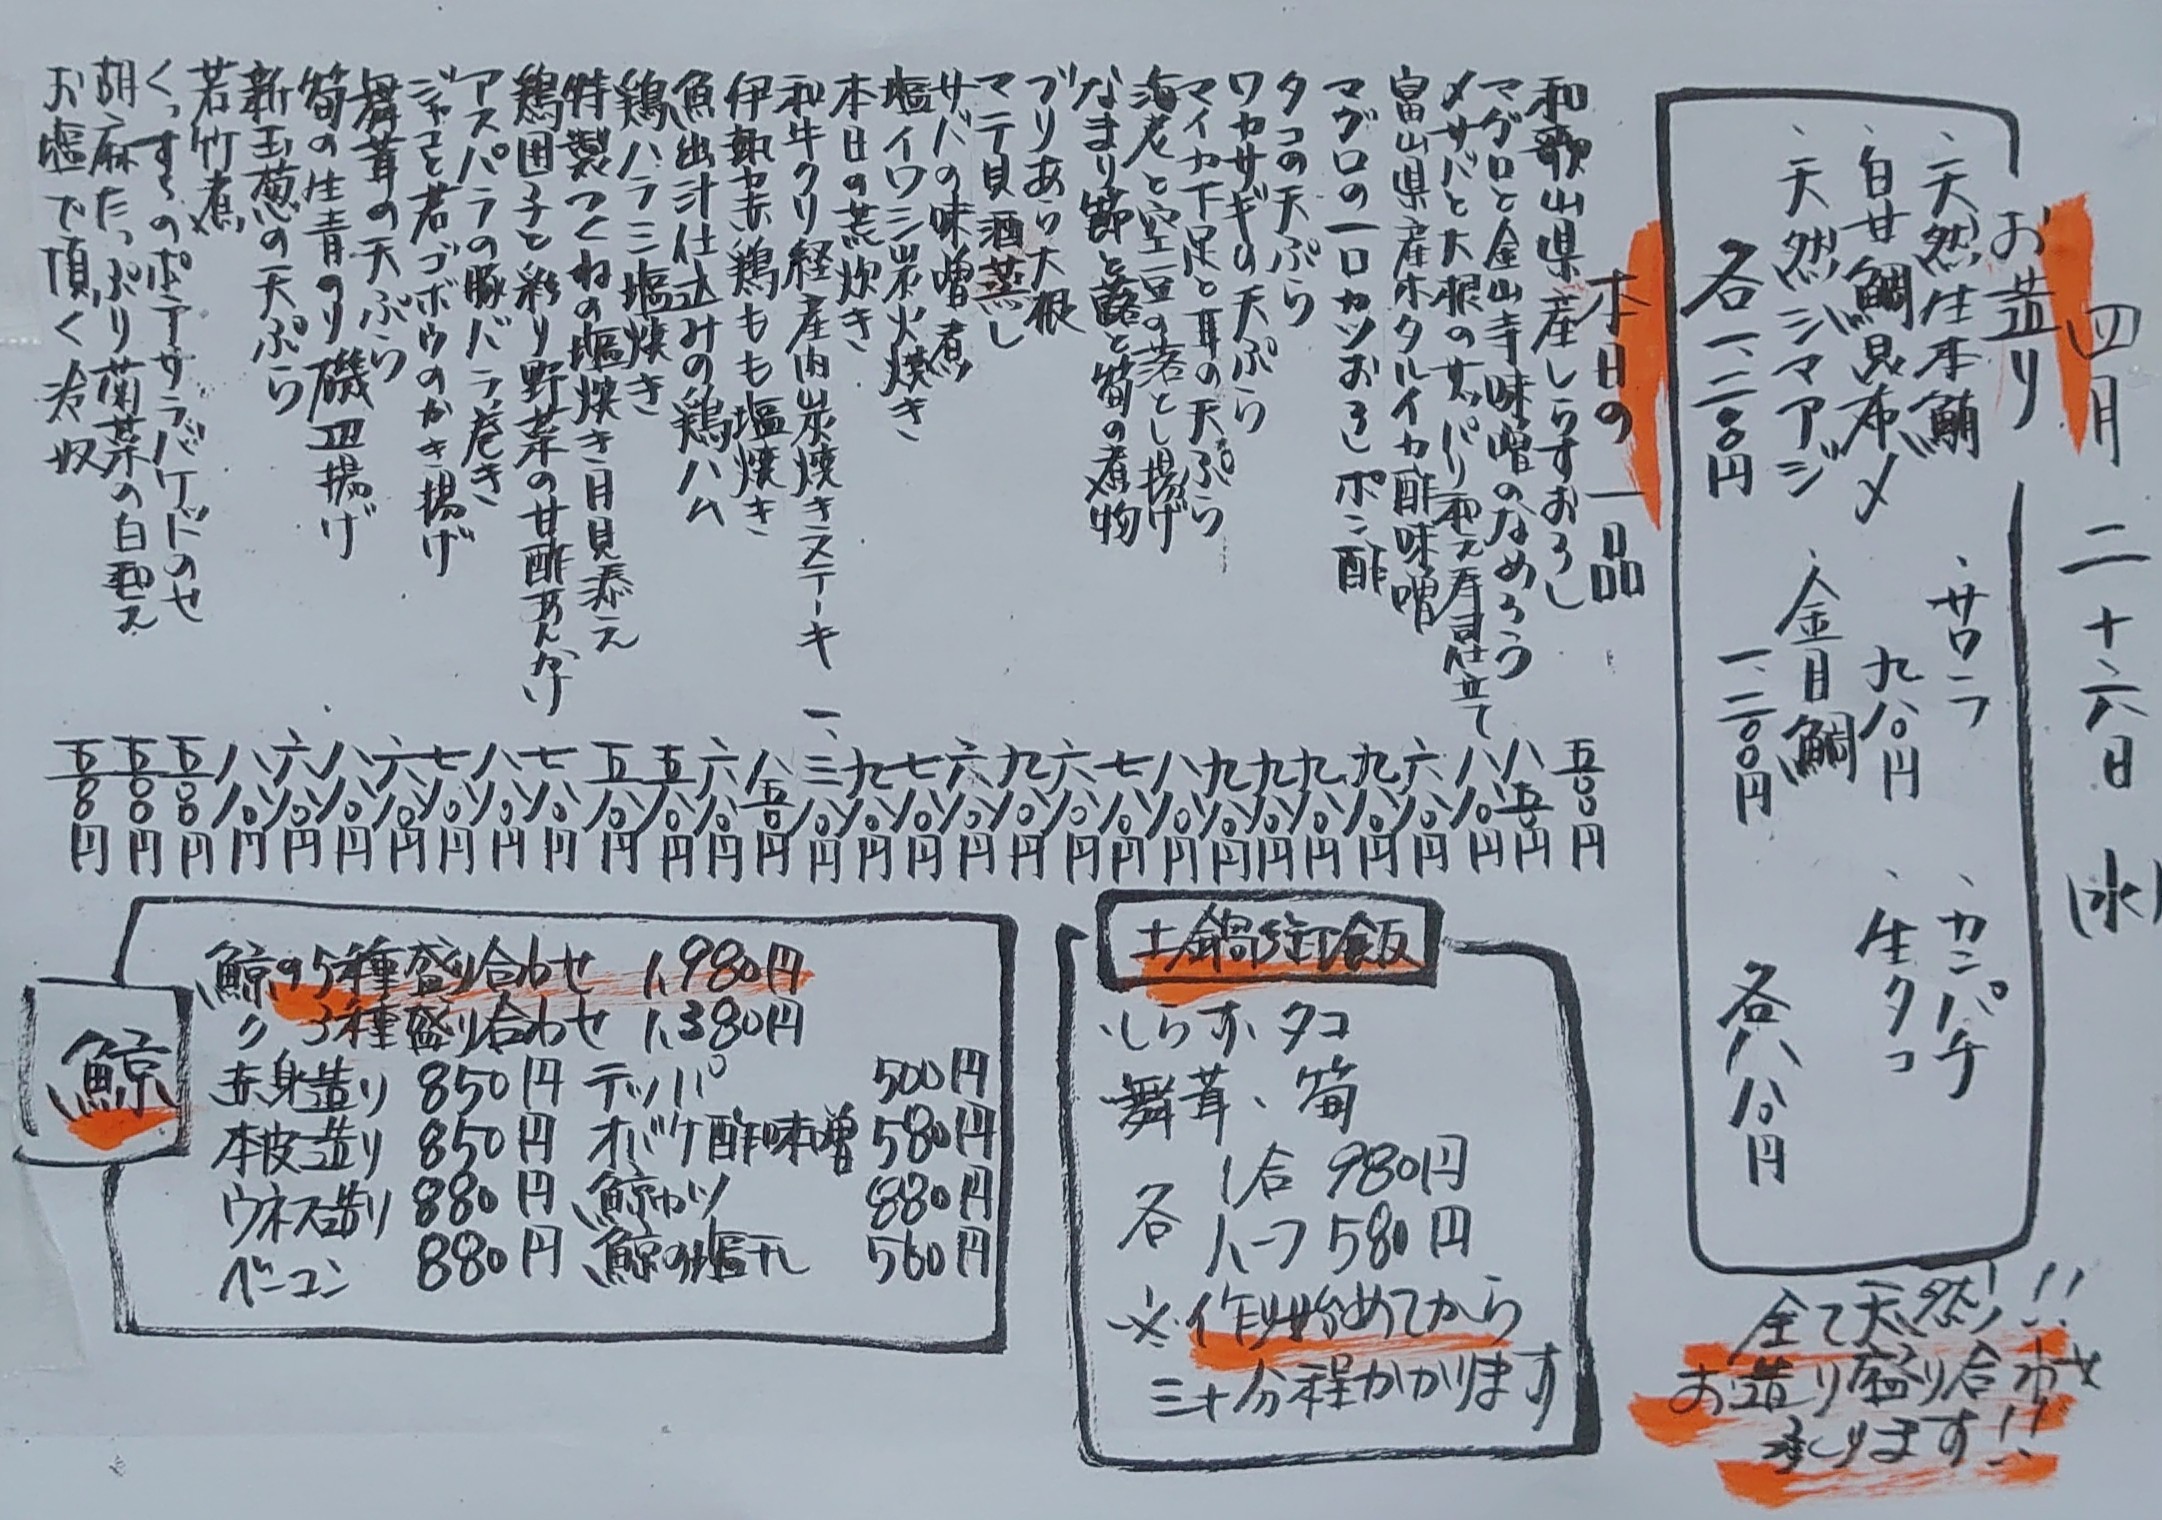 四月二十六日(水)
お造り
、天然生本鮪
白甘鯛昆布〆
、天然シマアジ
各一、二八〇円
、サワラ
九八〇円
、金目鯛
一、二〇〇円
、カンパチ
、生タコ
各八八〇円
全て天然!!
お造り盛り合わせ
承ります!!
本日の一品
和歌山県産しらすおろし 五〇〇円
マグロと金山寺味噌のなめろう 八五〇円
〆サバと大根のサッパリ和え寿司仕立て 八八〇円
富山県産ホタルイカ酢味噌 六八〇円
マグロの一口カツおろしポン酢 九八〇円
タコの天ぷら 九八〇円
ワカサギの天ぷら 九八〇円
マイカ下足と耳の天ぷら 九八〇円
海老と空豆の落とし揚げ 八八〇円
なまり節と蕗と筍の煮物 七八〇円
ブリあら大根 六八〇円
マテ貝酒蒸し 九八〇円
サバの味噌煮 六八〇円
塩イワシ岩火焼き 七八〇円
本日の荒炊き 九八〇円
和牛クリ経産肉炭焼きステーキ 一、三八〇円
伊勢赤鶏もも塩焼き 八五〇円
魚出汁仕込みの鶏ハム 六八〇円
鶏ハラミ塩焼き 五八〇円
特製つくねの塩焼き月見添え 五八〇円
鶏団子と彩り野菜の甘酢あんかけ 七八〇円
アスパラの豚バラ巻き 八八〇円
ジャコと若ゴボウのかき揚げ 七八〇円
舞茸の天ぷら 六八〇円
筍の生青のり磯辺揚げ 八八〇円
新玉葱の天ぷら 六八〇円
若竹煮 八八〇円
くっすぅのポテサラバゲッドのせ 五〇〇円
胡麻たっぷり菊菜の白和え 五〇〇円
お塩で頂く冷奴 五〇〇円
土鍋御飯
、しらす、タコ
舞茸、筍
各 1合 980円
ハーフ 580円
※作り始めてから
三十分程かかります
鯨
鯨の5種盛り合わせ 1,980円
〃 3種盛り合わせ 1,380円
赤身造り 850円 テッパ 500円
本皮造り 850円 オバケ酢味噌 580円
ウネス造り 880円 鯨カツ 880円
ベーコン 880円 鯨の塩干し 560円